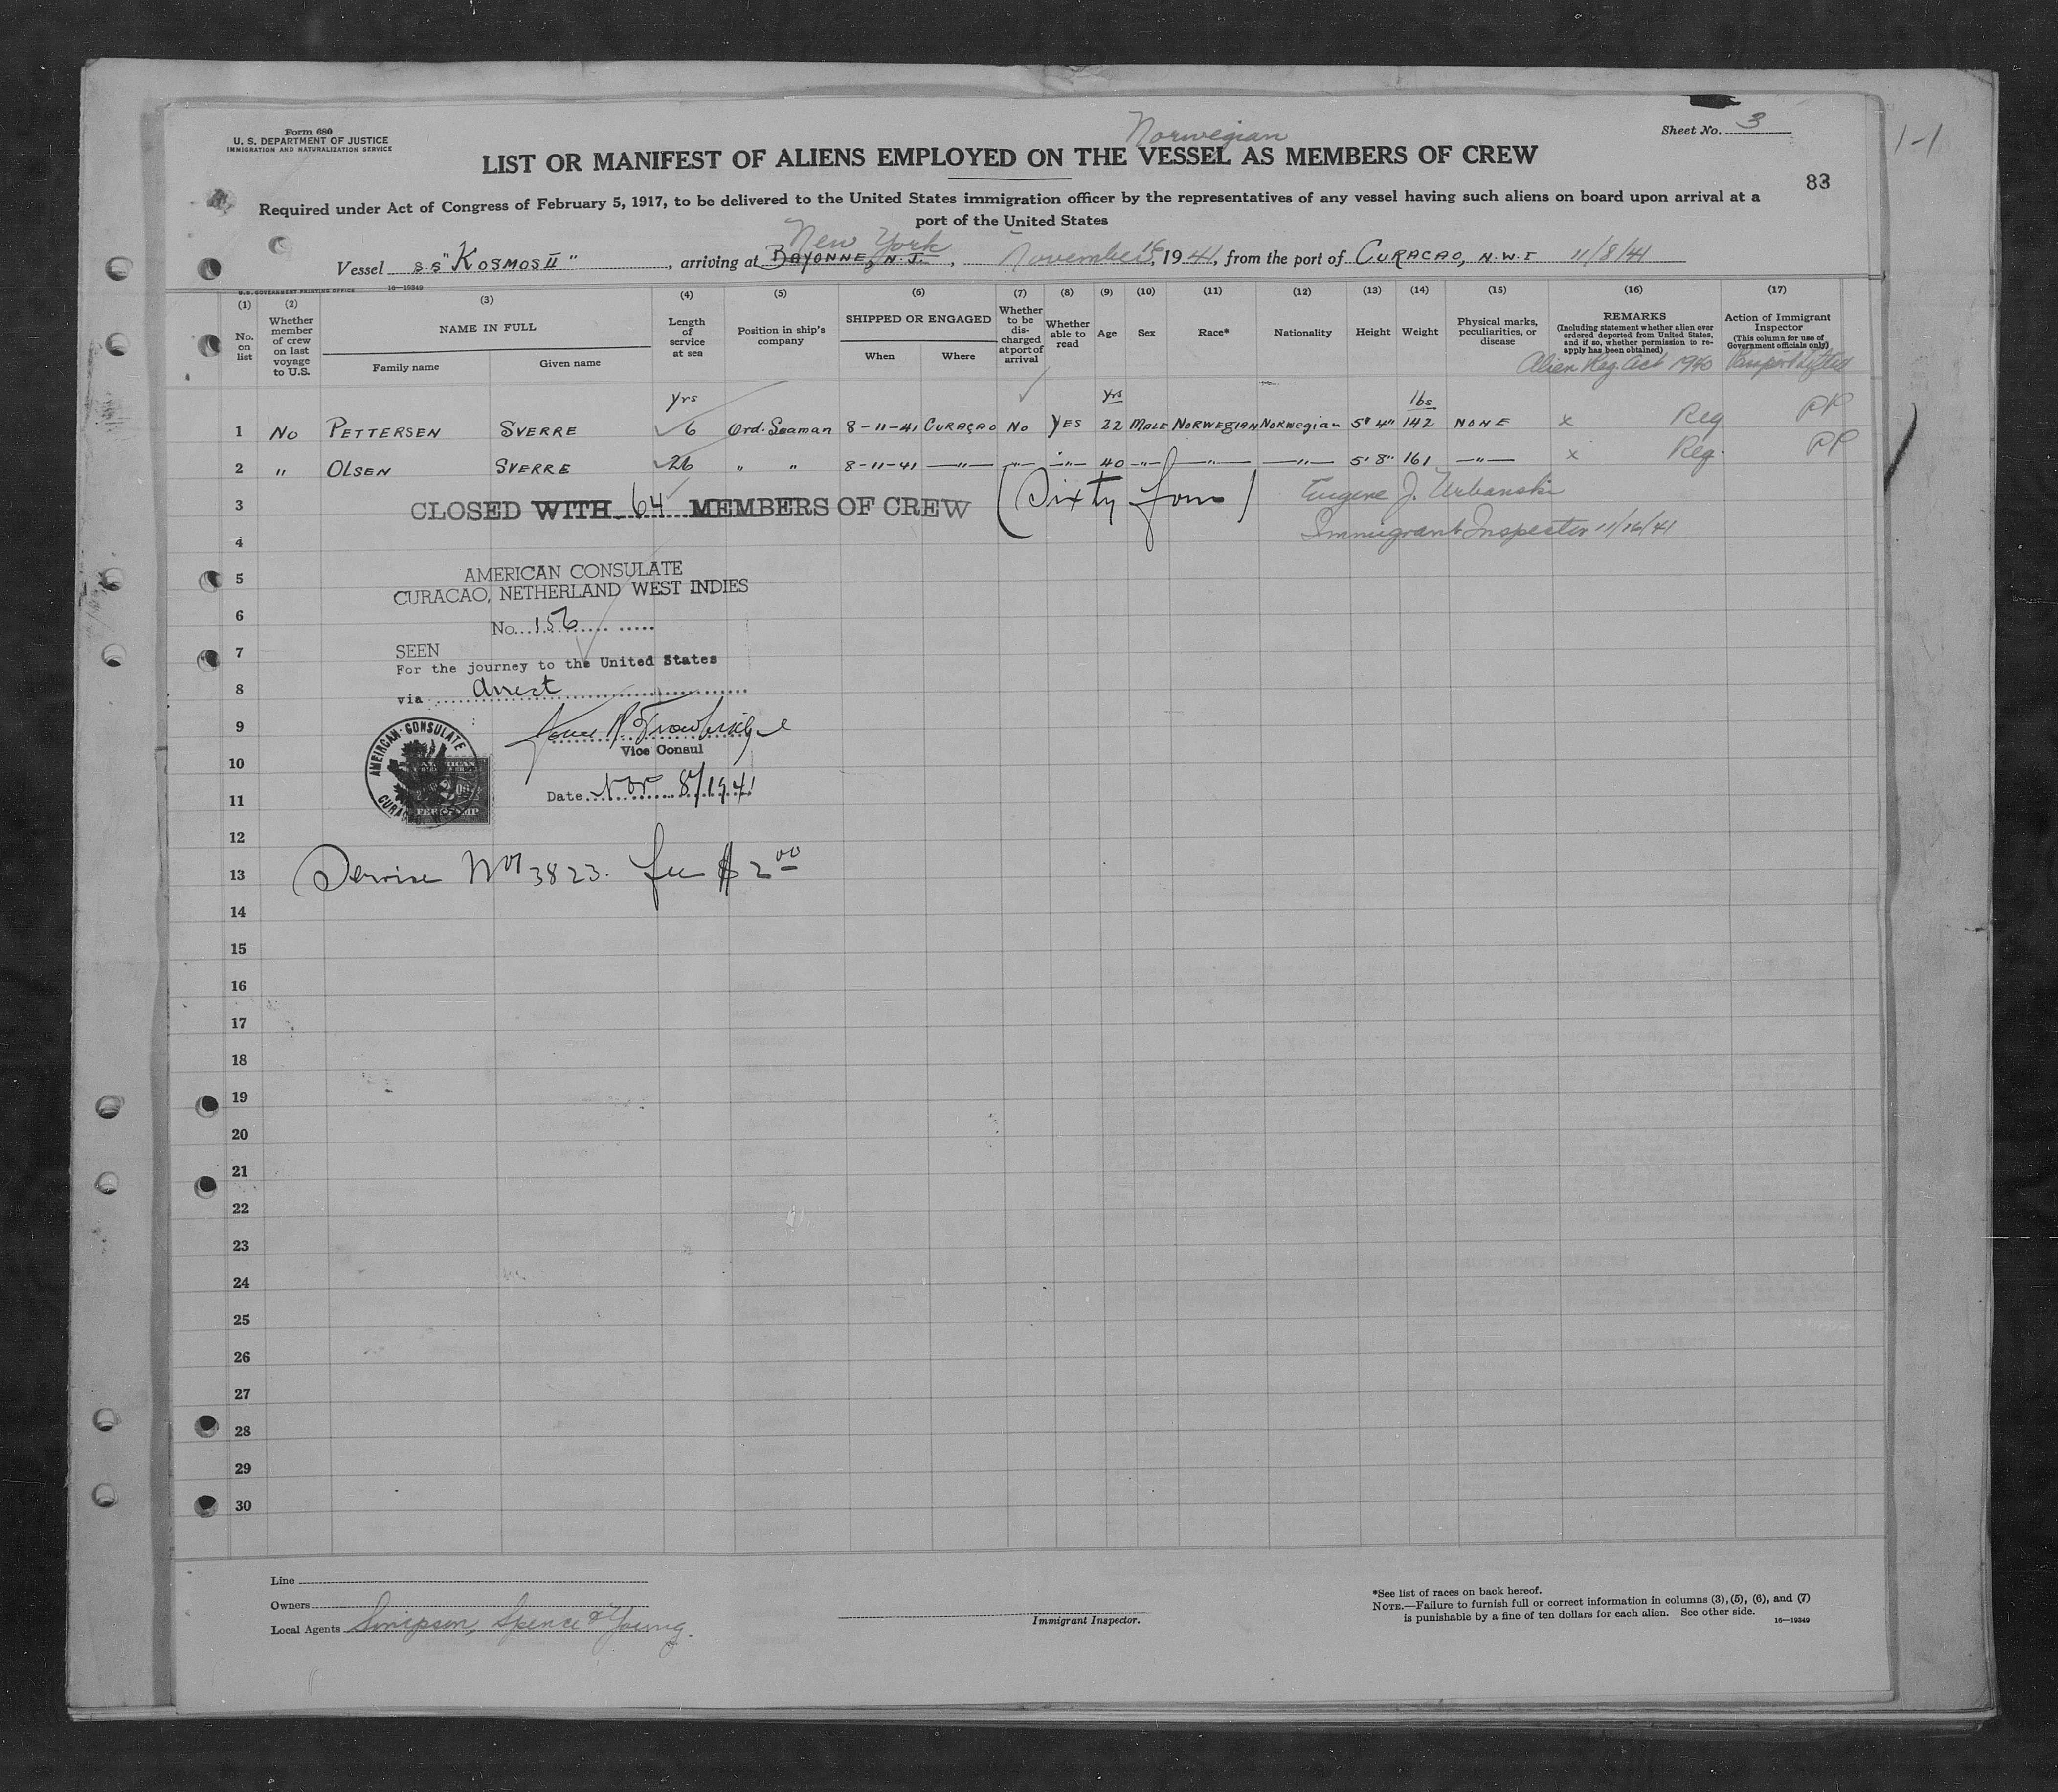 Form 680
U. S. DEPARTMENT OF JUSTICE
IMMIGRATION AND NATURALIZATION SERVICE
Norwegian
Sheet No. 3
1-1
LIST OR MANIFEST OF ALIENS EMPLOYED ON THE VESSEL AS MEMBERS OF CREW
83
Required under Act of Congress of February 5, 1917, to be delivered to the United States immigration officer by the representatives of any vessel having such aliens on board upon arrival at a
port of the United States
New York
Vessel S.S "KOSMOS II", arriving at BAYONNE, N.J., November 16, 1941, from the port of CURACAO, N.W.I 11/8/41
U.S. GOVERNMENT PRINTING OFFICE 16—19349
(1) No. on list
(2) Whether member of crew on last voyage to U.S.
(3) NAME IN FULL Family name Given name
(4) Length of service at sea
(5) Position in ship's company
(6) SHIPPED OR ENGAGED When Where
(7) Whether to be discharged at port of arrival
(8) Whether able to read
(9) Age
(10) Sex
(11) Race*
(12) Nationality
(13) Height
(14) Weight
(15) Physical marks, peculiarities, or disease
(16) REMARKS (Including statement whether alien ever ordered deported from United States, and if so, whether permission to re-apply has been obtained)
(17) Action of Immigrant Inspector (This column for use of Government officials only)
Alien Reg. Act 1940
yrs yrs lbs
1 No PETTERSEN SVERRE 6 Ord. Seaman 8-11-41 CURAÇAO No YES 22 MALE NORWEGIAN Norwegian 5' 4" 142 NONE x Reg PP
2 " OLSEN SVERRE 26 " " 8-11-41 —"— —"— —"— 40 —"— —"— —"— 5' 8" 161 —"— x Reg. PP
3 CLOSED WITH 64 MEMBERS OF CREW (Sixty four) Eugene J. Urbanski
4 Immigrant Inspector 11/16/41
AMERICAN CONSULATE
5 CURACAO, NETHERLAND WEST INDIES
6 No. 156
7 SEEN
For the journey to the United States
8 via direct
9
Vice Consul
10
AMERICAN CONSULATE
11 Date Nov 8/1941
12
13 Service No 3823. fee $2.00
14
15
16
17
18
19
20
21
22
23
24
25
26
27
28
29
30
Line
Owners
Local Agents Simpson, Spence & Young.
Immigrant Inspector.
*See list of races on back hereof.
NOTE.—Failure to furnish full or correct information in columns (3), (5), (6), and (7)
is punishable by a fine of ten dollars for each alien. See other side. 16—19349